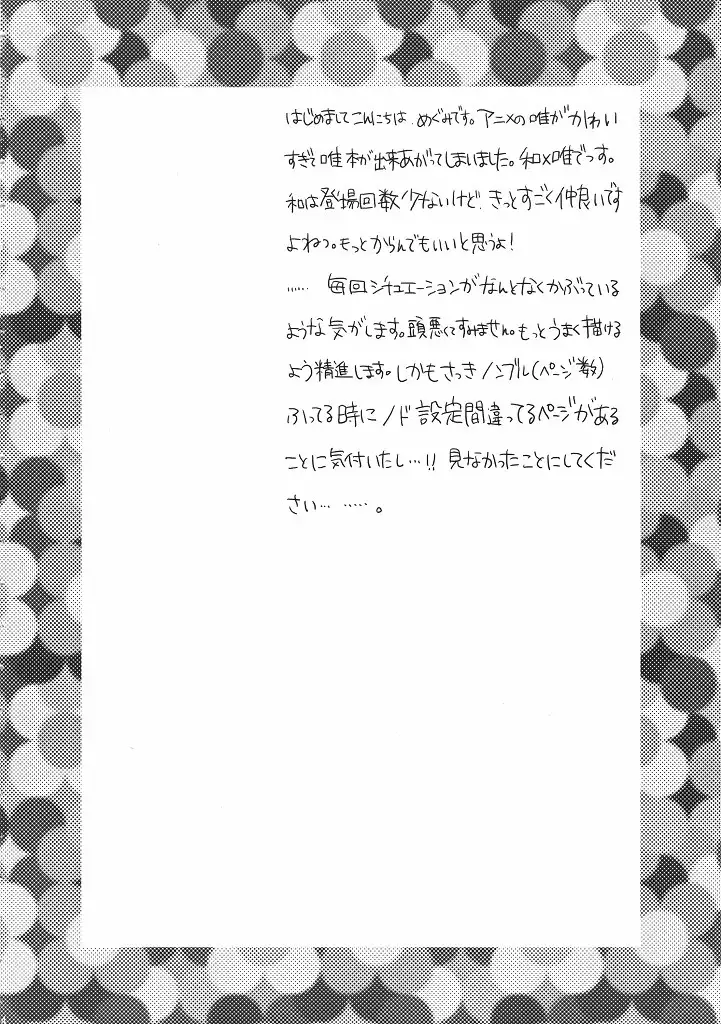 はじめましてこんにちは、めぐみです。アニメの唯がかわい
すぎて唯本が出来あがってしまいました。和×唯でっす。
和は登場回数少ないけど、きっとすごく仲良いです
よねっ。もっとからんでもいいと思うよ!
…… 毎回シチュエーションがなんとなくかぶっている
ような気がします。頭悪くてすみません。もっとうまく描ける
よう精進します。しかもさっきノンブル(ページ数)
ふってる時にノド設定間違ってるページがある
ことに気付いたし…!! 見なかったことにしてくだ
さい… ……。